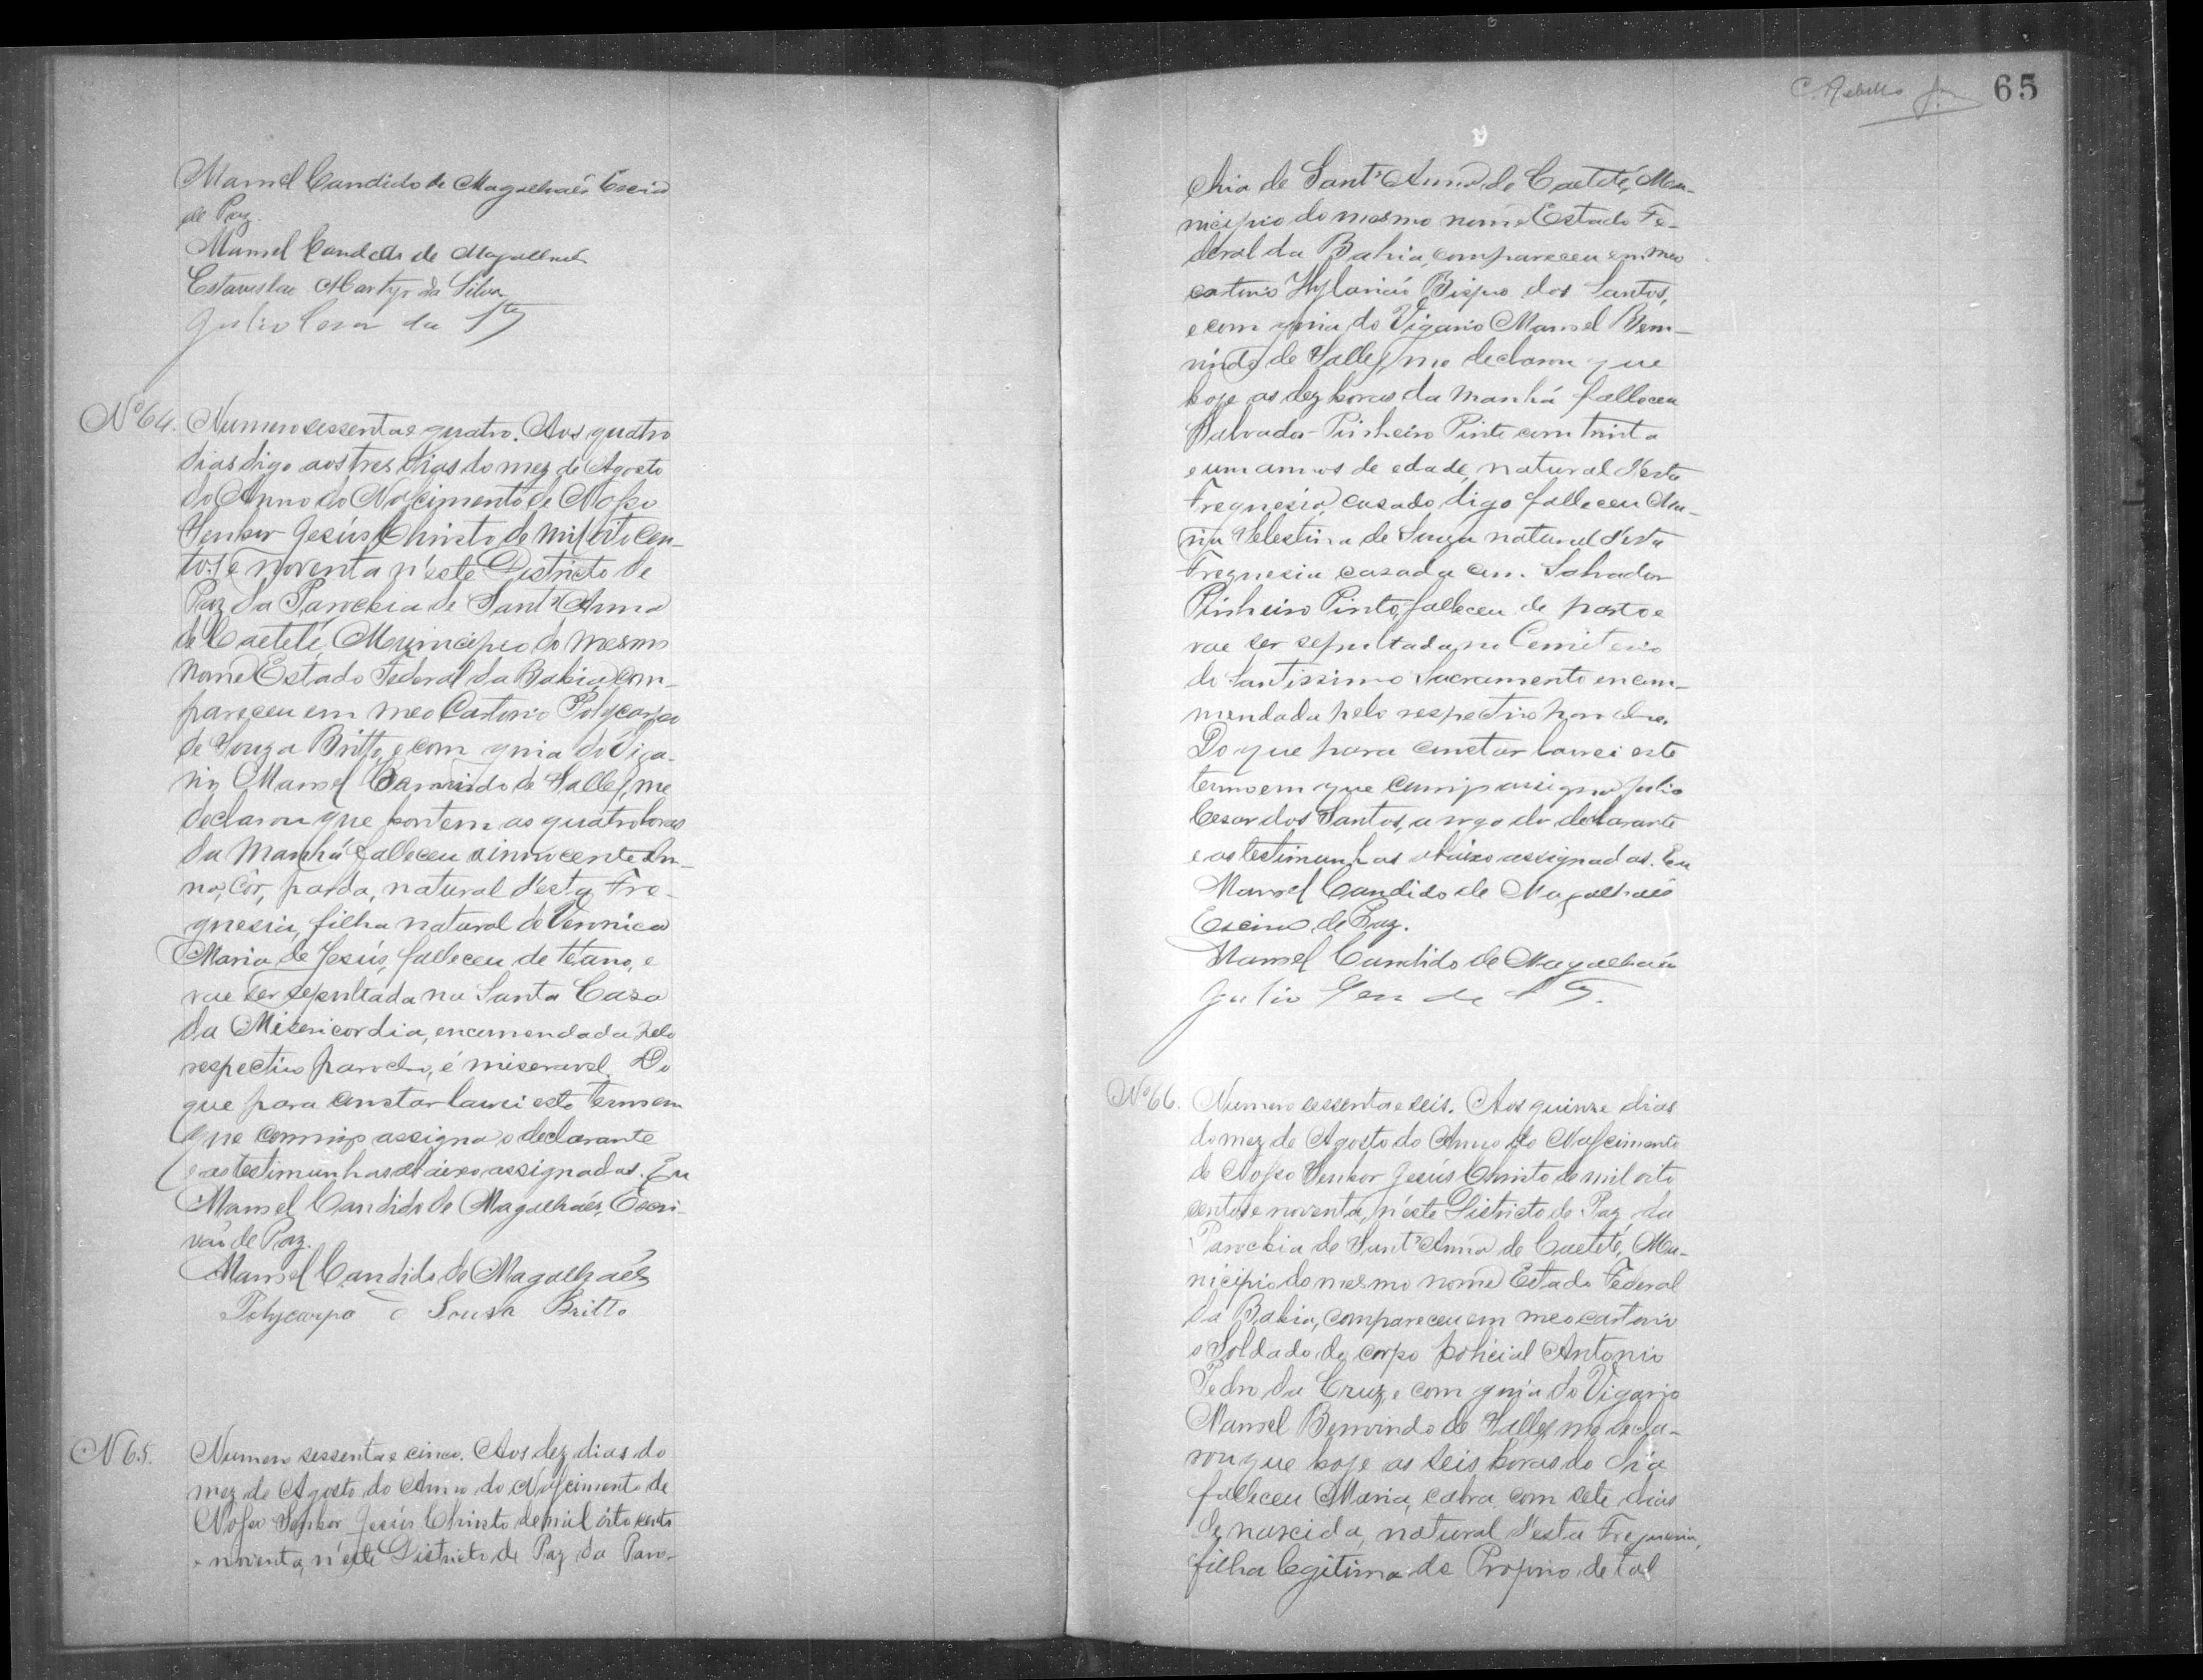 Manoel Candido de Magalhaês Escrivã
de Paz.
Manoel Candido de Magalhaês
Estanislau Martyr da Silva
Julio Cesar da
Nº 64. Numero sessenta e quatro. Aos quatro
dias digo aos tres dias do mez de Agosto
do Anno do Nascimento de Nosso
Senhor Jesús Christo de mil oito cen-
tos e noventa n'este Districto de
Paz da Parochia de Sant'Anna
de Caeteté, Municipio do mesmo
nome Estado Federal da Bahia, com-
pareceu em meo Cartorio Polycarpo
de Souza Britto, e com guia do Viga-
rio Manoel Bemvindo de Salles, me
declarou que hontem as quatro horas
da Manhá falleceu a innocente An-
na, Côr, parda, natural d'esta Fre-
guesia, filha natural de Veronica
Maria de Jesús, falleceu de tétano, e
vae ser sepultada na Santa Casa
da Misericordia, encomendada pelo
respectivo parocho, é miseravel. Do
que para constar lavrei este termo em
que commigo assigna o declarante
e as testimunhas abáixo assignadas. Eu
Manoel Candido de Magalhaés, Escri-
vaõ de Paz.
Manoel Candido de Magalhaês
Polycarpo d Sousa Britto
N 65. Numero sessenta e cinco. Aos dez dias do
mez de Agosto do Anno do Nascimento de
Nosso Senhor Jesús Christo de mil oito centos
e noventa, n'este Districto de Paz da Paro-
C. Rebello Jr. 65
chia de Sant'Anna de Caeteté, Mu-
nicipio do mesmo nome Estado Fe-
deral da Bahia, compareceu em meo
cartorio Hylarião Bispo dos Santos,
e com guia do Vigario Manoel Bem-
vindo de Salles, me declarou que
hoje as dez horas da manhá falleceu
Salvador Pinheiro Pinto com trinta
e um annos de edade, natural d'esta
Freguesia, casado, digo falleceu Ma-
ria Selestina de Souza natural d'esta
Freguesia casada com Salvador
Pinheiro Pinto, falleceu de parto e
vae ser sepultada no Cemiterio
do Santissimo Sacramento encom-
mendada pelo respectivo parocho.
Do que para constar lavrei este
termo em que comigo assigna Julio
Cesar dos Santos, a rogo do declarante
e as testimunhas abáixo assignadas. Eu
Manoel Candido de Magalhaés
Escrivaõ de Paz.
Manoel Candido de Magalhaês
Julio Cesar de
Nº 66. Numero sessenta e seis. Aos quinze dias
do mez de Agosto do Anno do Nascimento
de Nosso Senhor Jesús Christo de mil oito
centos e noventa, n'este Districto de Paz da
Parochia de Sant'Anna de Caeteté, Mu-
nicipio do mesmo nome Estado Federal
da Bahia, compareceu em meo cartorio
o Soldado do corpo policial Antonio
Pedro da Cruz, e com guia do Vigario
Manoel Bemvindo de Salles, me decla-
rou que hoje as seis horas do dia
falleceu Maria, cabra, com sete dias
de nascida, natural d'esta Freguesia,
filha legitima de Proprio de tal